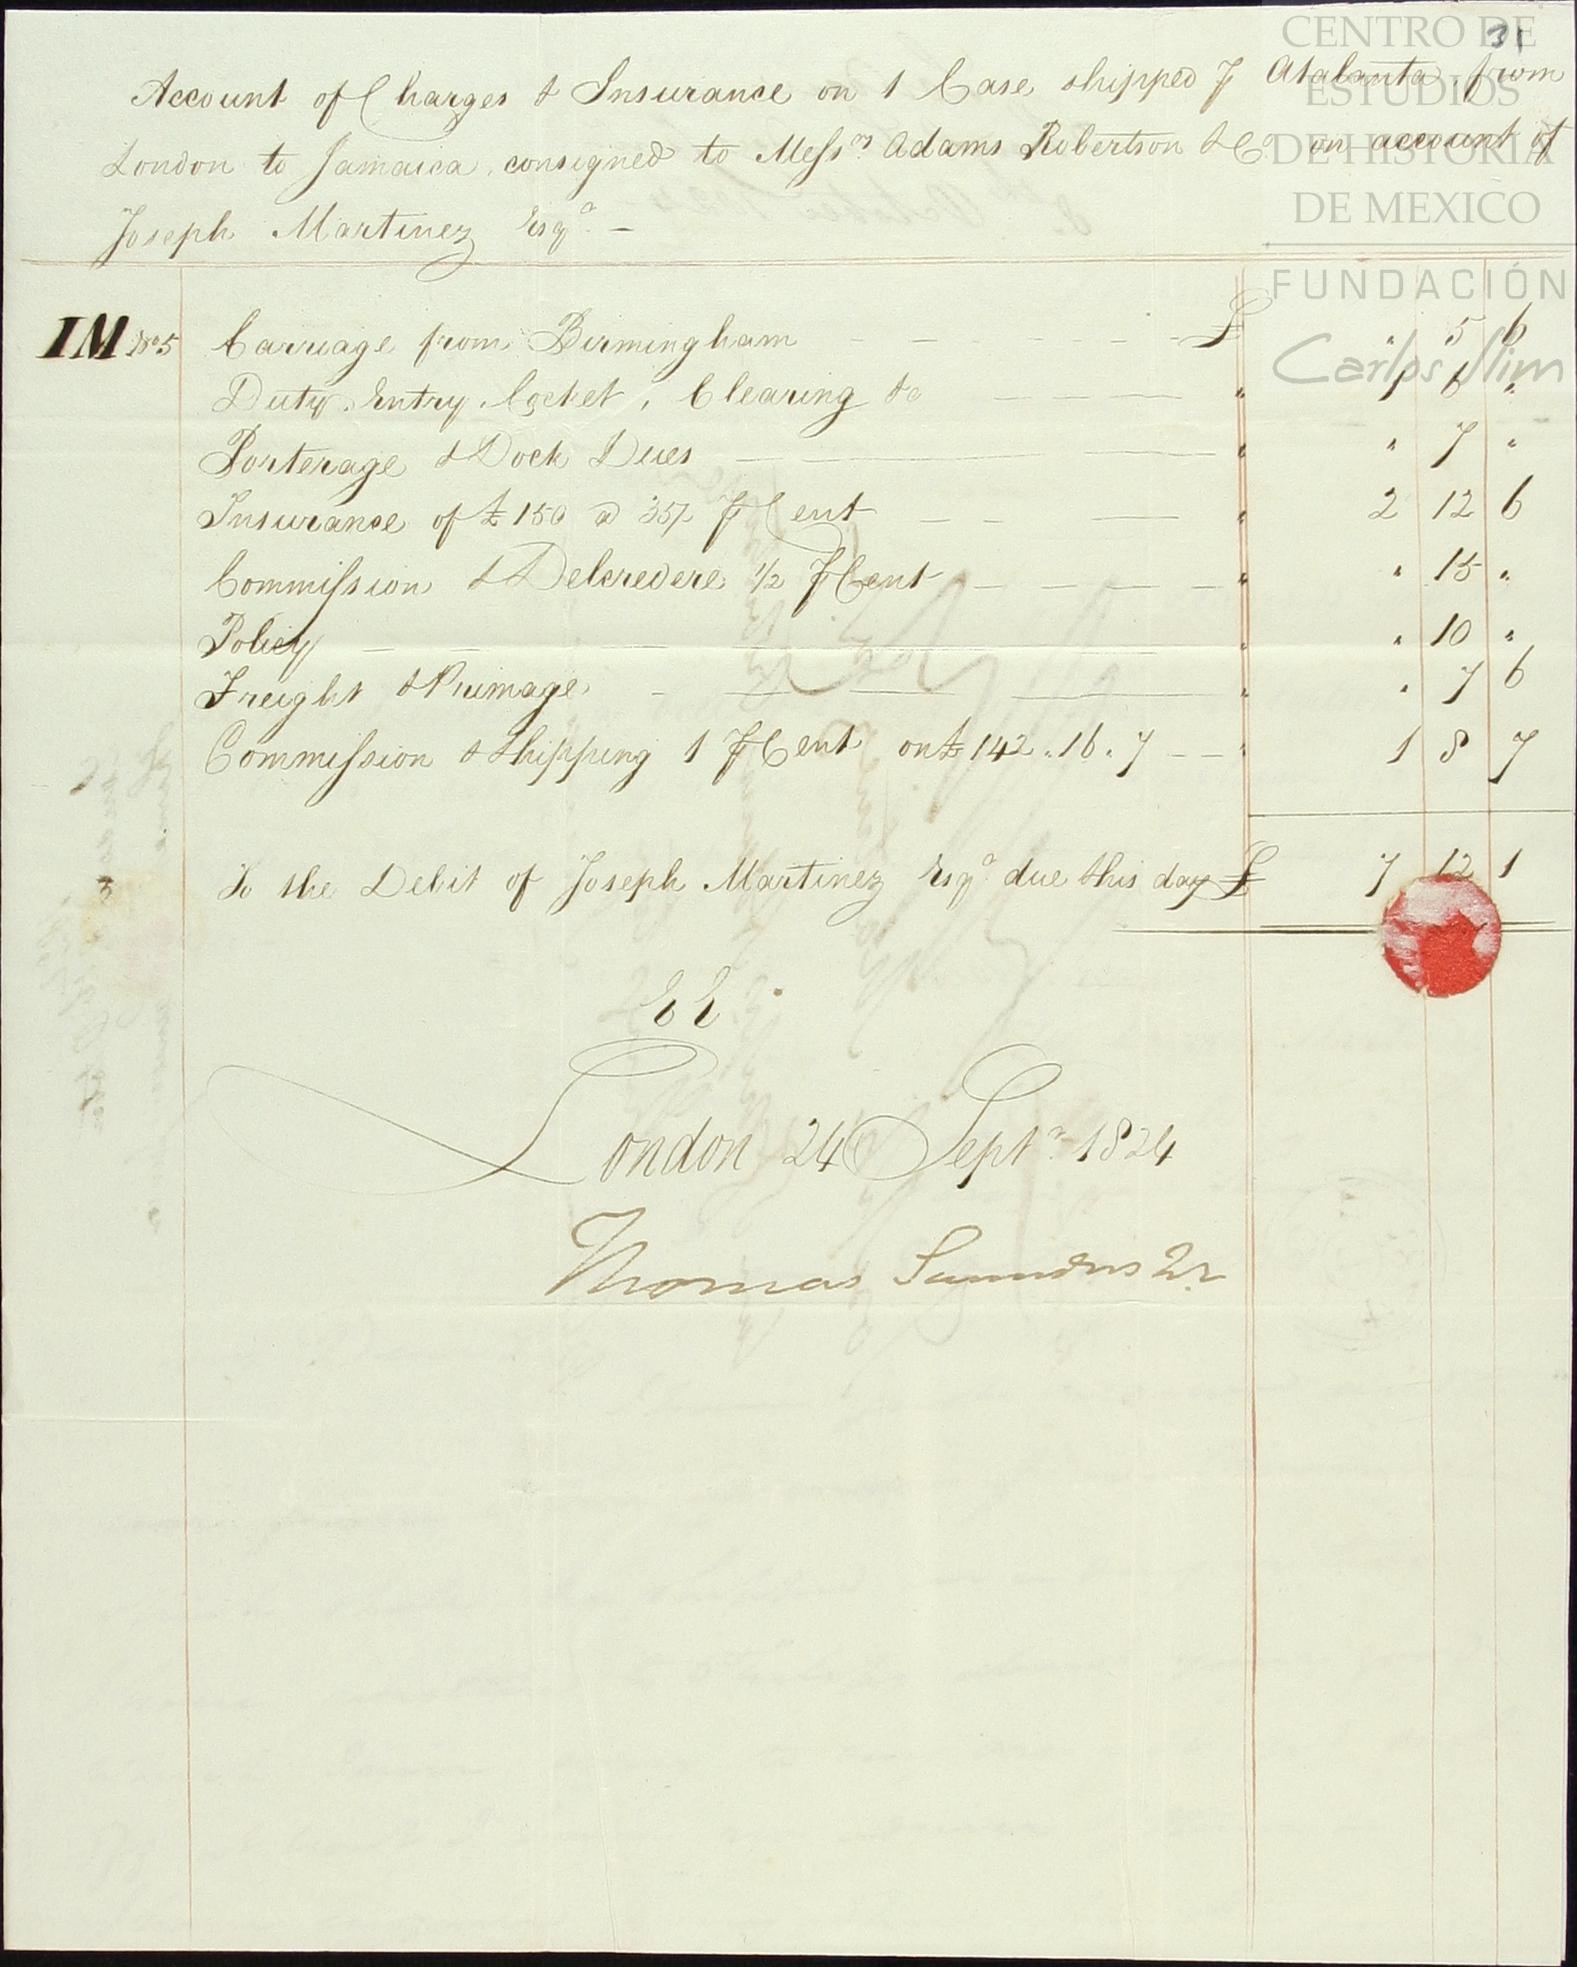 31
CENTRO DE
ESTUDIOS
DE HISTORIA
DE MEXICO
FUNDACIÓN
Carlos Slim
Account of Charges & Insurance on 1 Case shipped ⅌ Atalanta from
London to Jamaica, consigned to Messrs Adams Robertson & Co. on account of
Joseph Martinez Esqr. —
IM No 5 Carriage from Birmingham £ " 5 6
Duty, Entry, Cocket, Clearing &c " 1 6 "
Porterage & Dock Dues " " 7 "
Insurance of £150 @ 35/ ⅌ Cent " 2 12 6
Commission & Delcredere 1/2 ⅌ Cent " " 15 "
Policy " " 10 "
Freight & Primage " " 7 6
Commission & Shipping 1 ⅌ Cent on £142.16.7 " 1 8 7
To the Debit of Joseph Martinez Esqr. due this day £ 7 12 1
EE
London 24 Septr. 1824
Thomas Saunders Jr